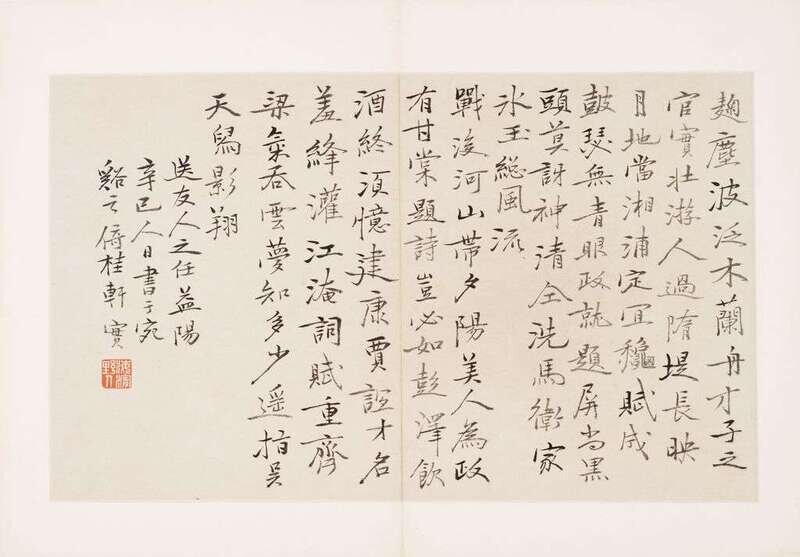 麹塵波泛木蘭舟才子之
官實壮游人過隋堤長映
月地當湘浦定宜穐賦成
鼓瑟無青眼政就題屏尚黑
頭莫訝神清仝洗馬衛家
氷玉総風流
戰後河山帶夕陽美人為政
有甘棠題詩豈必如彭澤飲
酒終須憶建康賈誼才名
羞絳灌江淹詞賦重齊
梁氣吞雲夢知多少遥指吴
天舄影翔
送友人之任益陽
辛巳人日書于宛
谿之倚桂軒 實